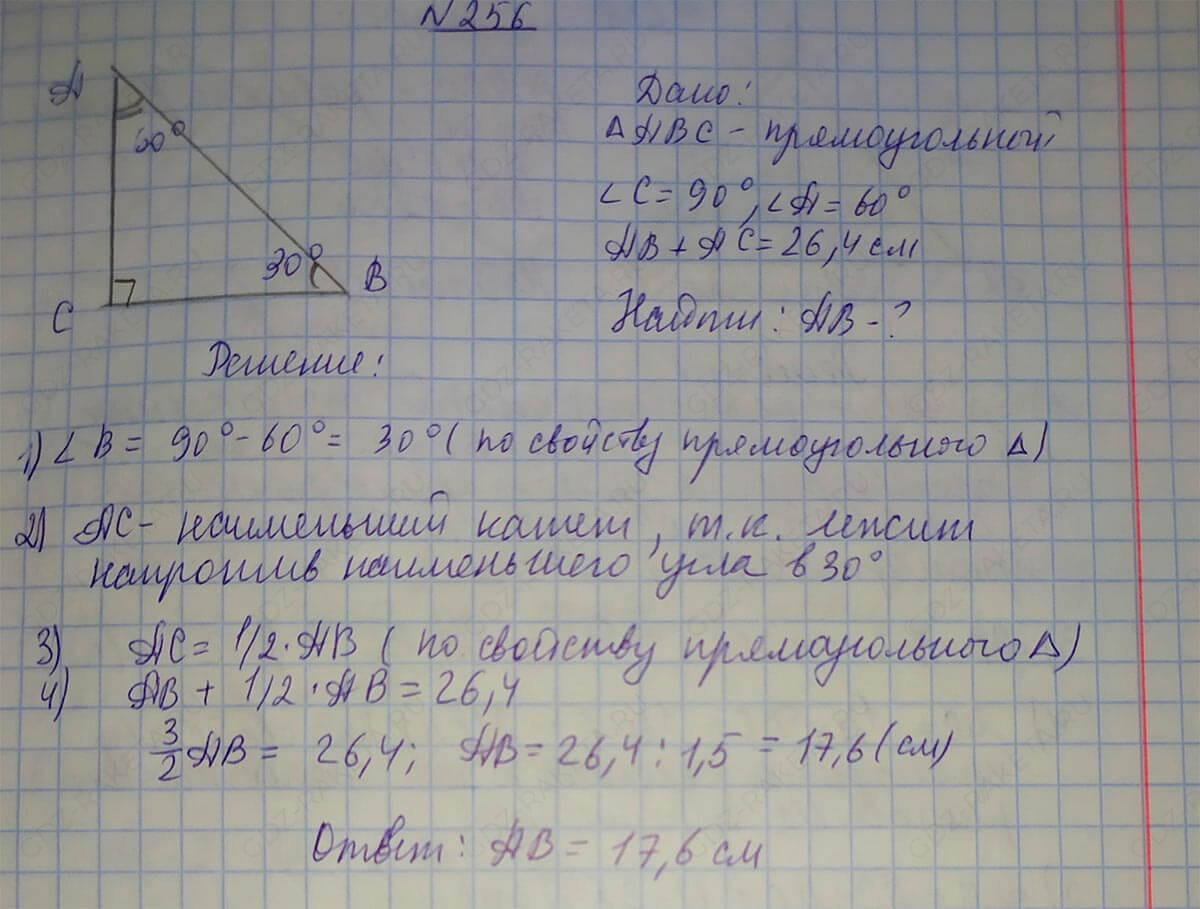 №256
А
60°
30°
В
С
Дано:
ΔАВС - прямоугольной
∠С = 90°, ∠А = 60°
АВ + АС = 26,4 см
Найти: АВ - ?
Решение:
1) ∠В = 90° - 60° = 30° (по свойству прямоугольного Δ)
2) АС - наименьший катет, т.к. лежит
напротив наименьшего угла в 30°
3) АС = 1/2 · АВ (по свойству прямоугольного Δ)
4) АВ + 1/2 · АВ = 26,4
3/2 АВ = 26,4; АВ = 26,4 : 1,5 = 17,6 (см)
Ответ: АВ = 17,6 см